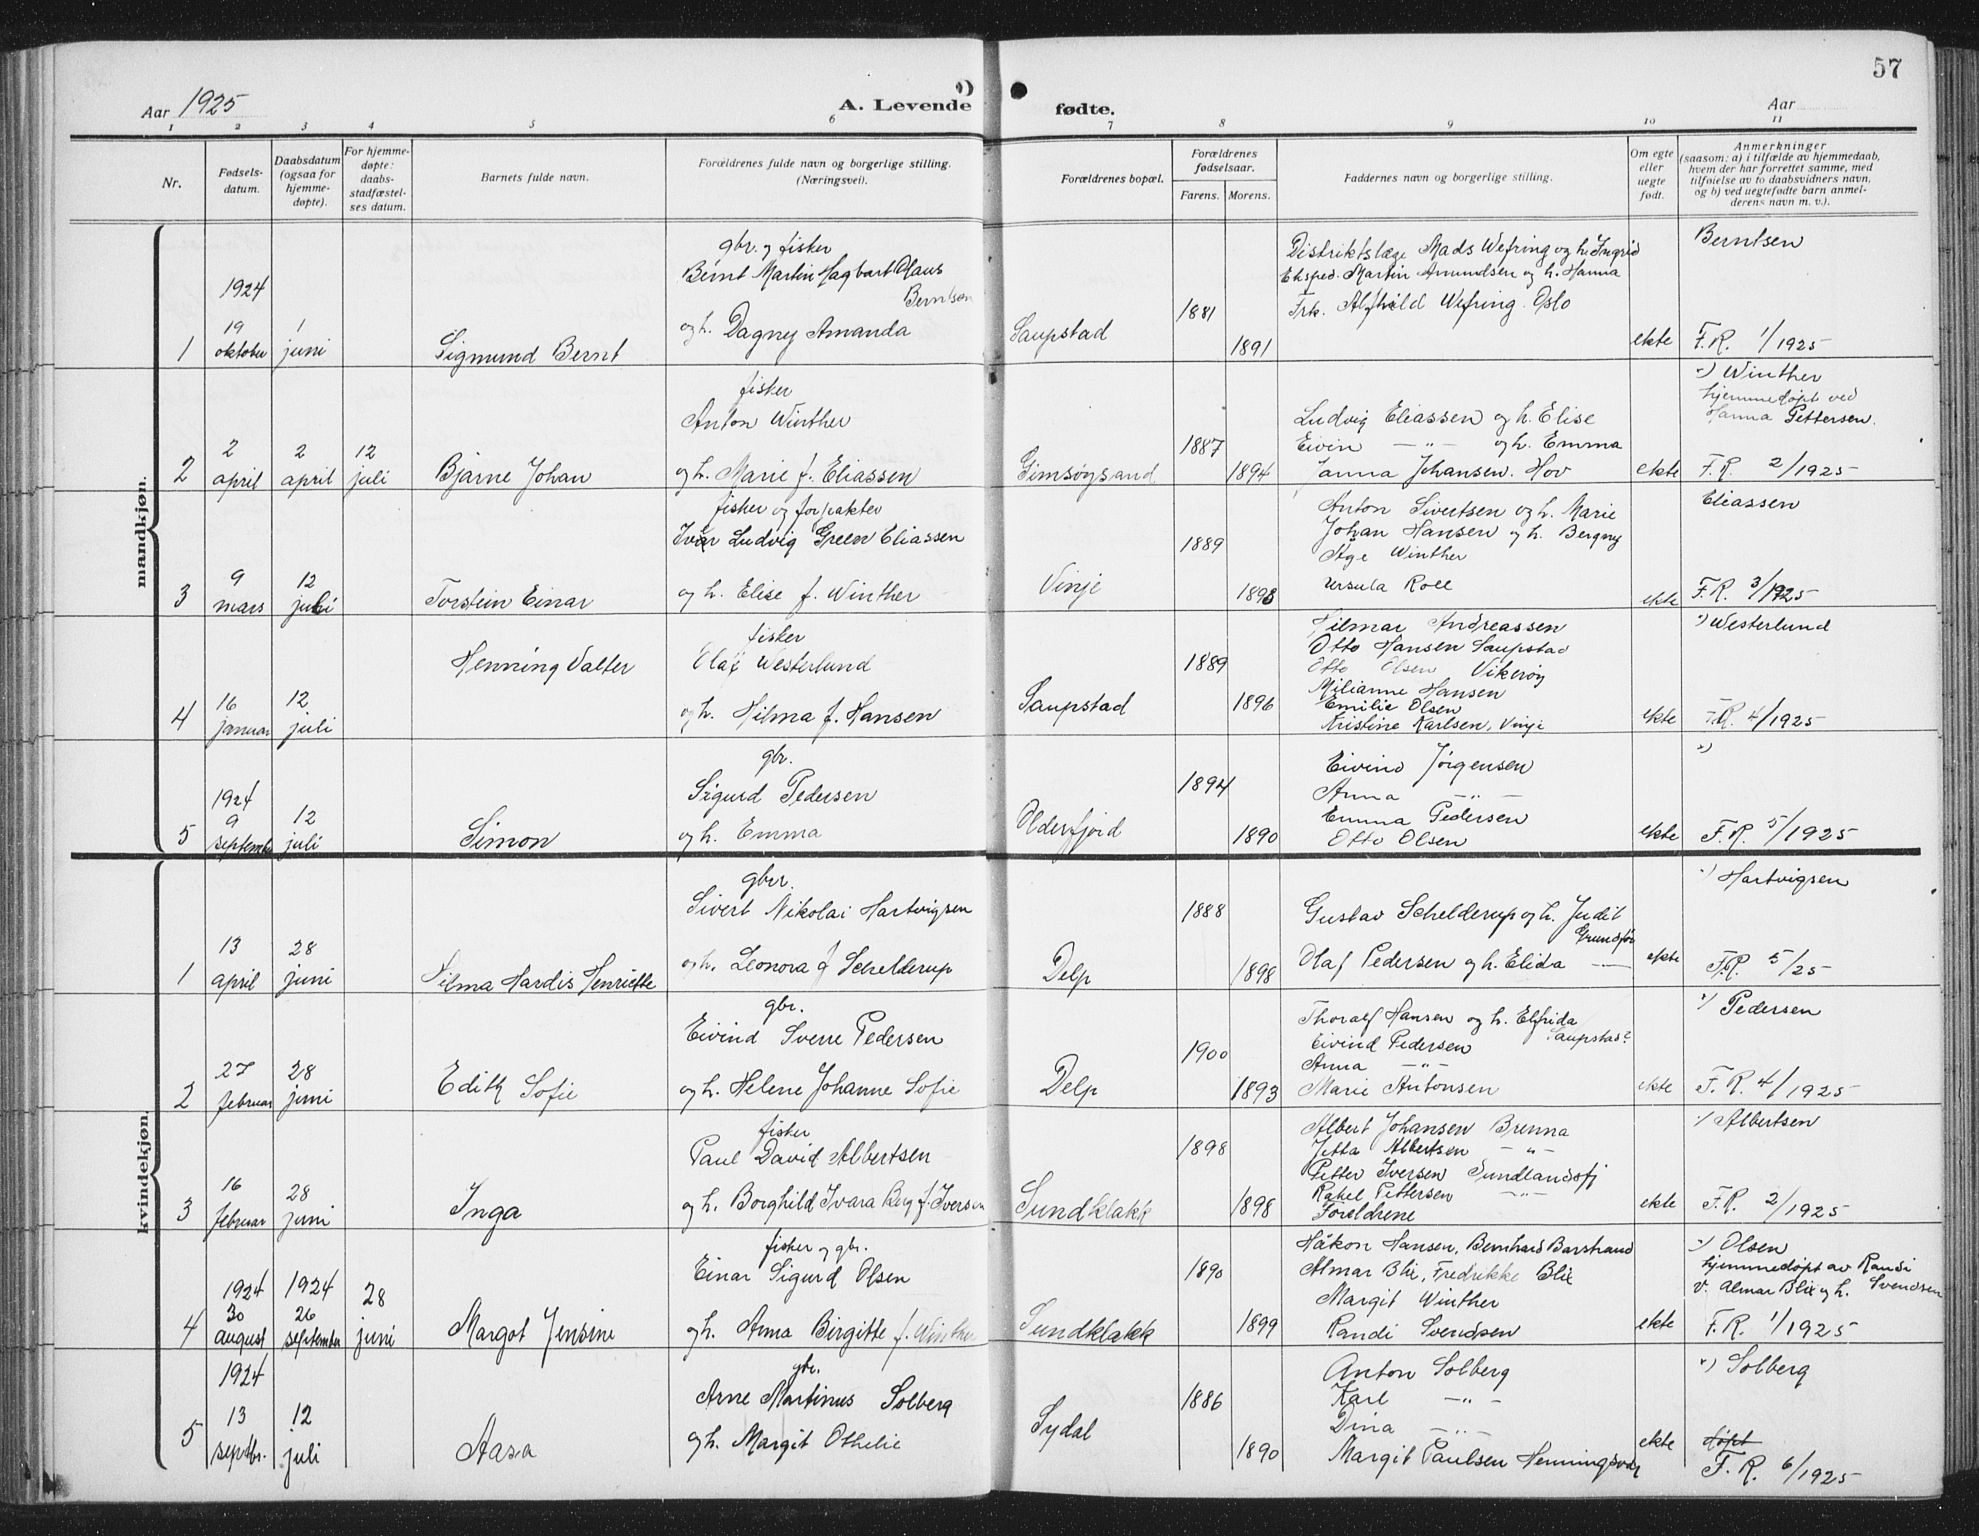 57
Aar 1925
A. Levende
fødte.
Aar
1 2 3 4 5 6 7 8 9 10 11
Nr.
Fødsels-
datum.
Daabsdatum
(ogsaa for
hjemme-
døpte).
For hjemme-
døpte:
daabs-
stadfæstel-
ses datum.
Barnets fulde navn.
Forældrenes fulde navn og borgerlige stilling.
(Næringsvei).
Forældrenes bopæl.
Forældrenes
fødselsaar.
Farens. Morens.
Faddernes navn og borgerlige stilling.
Om egte
eller
uegte
født.
Anmerkninger
(saasom: a) i tilfælde av hjemmedaab,
hvem der har forrettet samme, med
tilføielse av to daabsvidners navn,
og b) ved uegtefødte barn anmel-
derens navn m. v.).
mandkjøn.
1
1924
19
oktober
1
juni
Sigmund Bernt
gbr. og fisker
Bernt Martin Hagbart Claus
Berntsen
og h. Dagny Amanda
Saupstad
1881
1891
Distriktslæge Mads Wefring og h. Ingrid
Eksped. Martin Amundsen og h. Hanna
Frk. Alfhild Wefring. Oslo
ekte
Berntsen
F.R. 1/1925
2
2
april
2
april
12
juli
Bjarne Johan
fisker
Anton Winther
og h. Marie f. Eliassen
Gimsøysand
1887
1894
Ludvig Eliassen og h. Elise
Eivin —"— og h. Emma
Janna Johansen. Hov
ekte
Winther
hjemmedøpt ved
Hanna Pettersen.
F.R. 2/1925
3
9
mars
12
juli
Torstein Einar
fisker og forpakter
Ivar Ludvig Green Eliassen
og h. Elise f. Winther
Vinje
1889
1898
Anton Sivertsen og h. Marie
Johan Hansen og h. Bergny
Åge Winther
Ursula Roll
ekte
Eliassen
F.R. 3/1925
4
16
januar
12
juli
Henning Valter
fisker
Olaf Westerlund
og h. Hilma f. Hansen
Saupstad
1889
1896
Hilmar Andreassen
Otto Hansen Saupstad
Otto Olsen Vikerøy
Milianne Hansen
Emilie Olsen
Kristine Karlsen, Vinje
ekte
Westerlund
F.R. 4/1925
5
1924
9
september
12
juli
Simon
gbr.
Sigurd Pedersen
og h. Emma
Olderfjord
1894
1890
Eivind Jørgensen
Anna —"—
Emma Pedersen
Otto Olsen
ekte
F.R. 5/1925
kvindekjøn.
1
13
april
28
juni
Hilma Hardis Henriette
gbr.
Sivert Nikolai Hartvigsen
og h. Leonora f Schelderup
Delp
1888
1898
Gustav Schelderup og h. Judit
Grundfør
Olaf Pedersen og h. Elida —
ekte
Hartvigsen
F.R. 5/25
2
27
februar
28
juni
Edith Sofie
gbr.
Eivind Sverre Pedersen
og h. Helene Johanne Sofie
Delp
1900
1893
Thoralf Hansen og h. Elfrida
Saupstad
Eivind Pedersen
Anna —"—
Marie Antonsen
ekte
Pedersen
F.R. 4/1925
3
16
februar
28
juni
Inga
fisker
Paul David Albertsen
og h. Borghild Ivara Berg f. Iversen
Sundklakk
1898
1898
Albert Johansen Brenna
Jetta Albertsen —"—
Petter Iversen Sundlandsfj
Rakel Pettersen —"—
Foreldrene
ekte
Albertsen
F.R. 2/1925
4
1924
30
august
1924
26
september
28
juni
Margot Jensine
fisker og gbr.
Einar Sigurd Olsen
og h. Anna Birgitte f. Winther
Sundklakk
1890
1899
Håkon Hansen, Bernhard Barstrand
Almar Blix, Fredrikke Blix
Margit Winther
Randi Svendsen
ekte
Olsen
hjemmedøpt av Randi
v. Almar Blix og h. Svendsen
F.R. 1/1925
5
1924
13
septbr.
12
juli
Aasa
gbr.
Arne Martinus Solberg
og h. Margit Othelie
Sydal
1886
1890
Anton Solberg
Karl —"—
Dina —"—
Margit Paulsen Henningsvær
ekte
Solberg
døpt
F.R. 6/1925